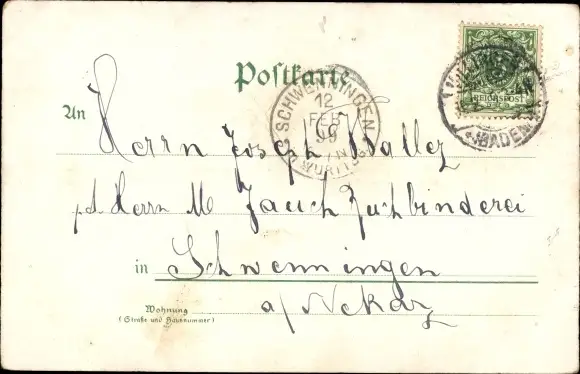 Postkarte
REICHSPOST
BADEN
SCHWENNINGEN
12
FEB
99
An
Herrn Joseph Walley
p.A. Herrn M Jauch Buchbinderei
in Schwenningen
a/Nekar
Wohnung
(Straße und Hausnummer)